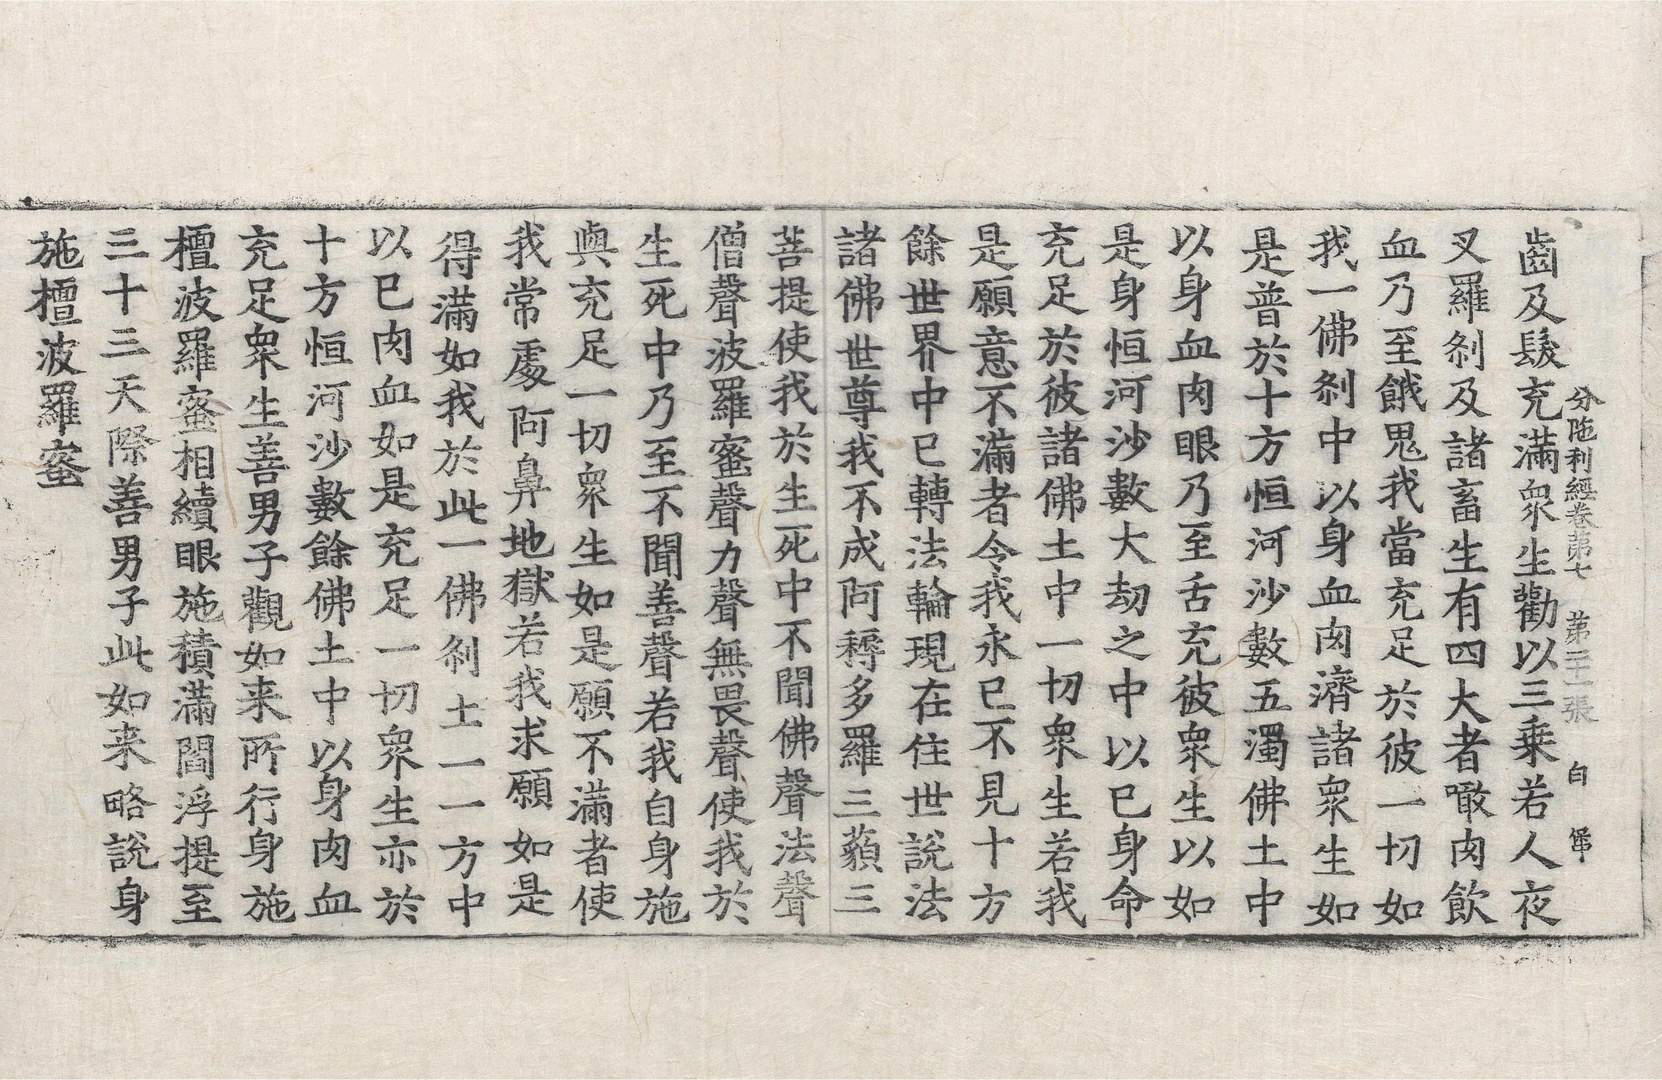 齒及髮充滿衆生勸以三乗若人夜
叉羅刹及諸畜生有四大者噉肉飲
血乃至餓鬼我當充足於彼一切如
我一佛刹中以身血肉濟諸衆生如
是普於十方恒河沙數五濁佛土中
以身血肉眼乃至舌充彼衆生以如
是身恒河沙數大劫之中以已身命
充足於彼諸佛土中一切衆生若我
是願意不滿者令我永已不見十方
餘世界中已轉法輪現在住世說法
諸佛世尊我不成阿耨多羅三藐三
菩提使我於生死中不聞佛聲法聲
僧聲波羅蜜聲力聲無畏聲使我於
生死中乃至不聞善聲若我自身施
與充足一切衆生如是願不滿者使
我常處阿鼻地獄若我求願如是
得滿如我於此一佛刹土一一方中
以已肉血如是充足一切衆生亦於
十方恒河沙數餘佛土中以身肉血
充足衆生善男子觀如来所行身施
檀波羅蜜相續眼施積滿閻浮提至
三十三天際善男子此如来略說身
施檀波羅蜜
分陁利經卷第七 第二十張 白